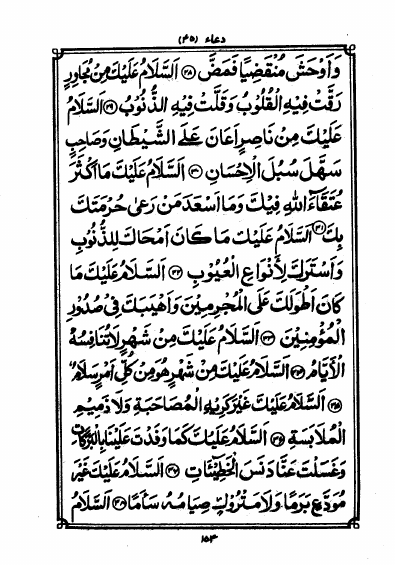 دعاء (۴۵)
وَاَوْحَشَ مُنْقَضِيًا فَمَضَّ ﴿۲۸﴾ اَلسَّلَامُ عَلَيْكَ مِنْ مُجَاوِرٍ
رَقَّتْ فِيْهِ الْقُلُوْبُ وَقَلَّتْ فِيْهِ الذُّنُوْبُ ﴿۲۹﴾ اَلسَّلَامُ
عَلَيْكَ مِنْ نَاصِرٍ اَعَانَ عَلَى الشَّيْطَانِ وَصَاحِبٍ
سَهَّلَ سُبُلَ الْاِحْسَانِ ﴿۳۰﴾ اَلسَّلَامُ عَلَيْكَ مَا اَكْثَرَ
عُتَقَآءَ اللّٰهِ فِيْكَ وَمَا اَسْعَدَ مَنْ رَعٰى حُرْمَتَكَ
بِكَ ﴿۳۱﴾ اَلسَّلَامُ عَلَيْكَ مَا كَانَ اَمْحَاكَ لِلذُّنُوْبِ
وَاَسْتَرَكَ لِاَنْوَاعِ الْعُيُوْبِ ﴿۳۲﴾ اَلسَّلَامُ عَلَيْكَ مَا
كَانَ اَطْوَلَكَ عَلَى الْمُجْرِمِيْنَ وَاَهْيَبَكَ فِىْ صُدُوْرِ
الْمُؤْمِنِيْنَ ﴿۳۳﴾ اَلسَّلَامُ عَلَيْكَ مِنْ شَهْرٍ لَا تُنَافِسُهُ
الْاَيَّامُ ﴿۳۴﴾ اَلسَّلَامُ عَلَيْكَ مِنْ شَهْرٍ هُوَ مِنْ كُلِّ اَمْرٍ سَلَامٌ
﴿۳۵﴾ اَلسَّلَامُ عَلَيْكَ غَيْرَ كَرِيْهِ الْمُصَاحَبَةِ وَلَا ذَمِيْمِ
الْمُلَابَسَةِ ﴿۳۶﴾ اَلسَّلَامُ عَلَيْكَ كَمَا وَفَدْتَ عَلَيْنَا بِالْبَرَكَاتِ
وَغَسَلْتَ عَنَّا دَنَسَ الْخَطِيْئَاتِ ﴿۳۷﴾ اَلسَّلَامُ عَلَيْكَ غَيْرَ
مُوَدَّعٍ بَرَمًا وَلَا مَتْرُوْكٍ صِيَامُهُ سَأَمًا ﴿۳۸﴾ اَلسَّلَامُ
۱۵۳